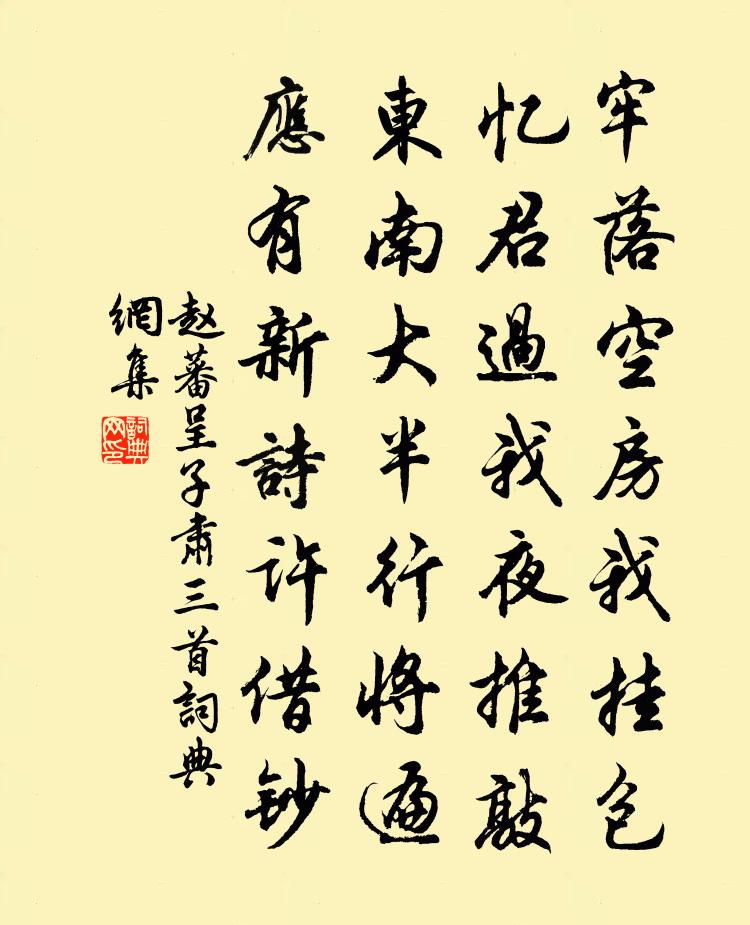 牢落空房我挂包
忆君過我夜推敲
東南大半行將遍
應有新詩许借鈔
赵蕃呈子肅三首詞典
網集
詞典
网印